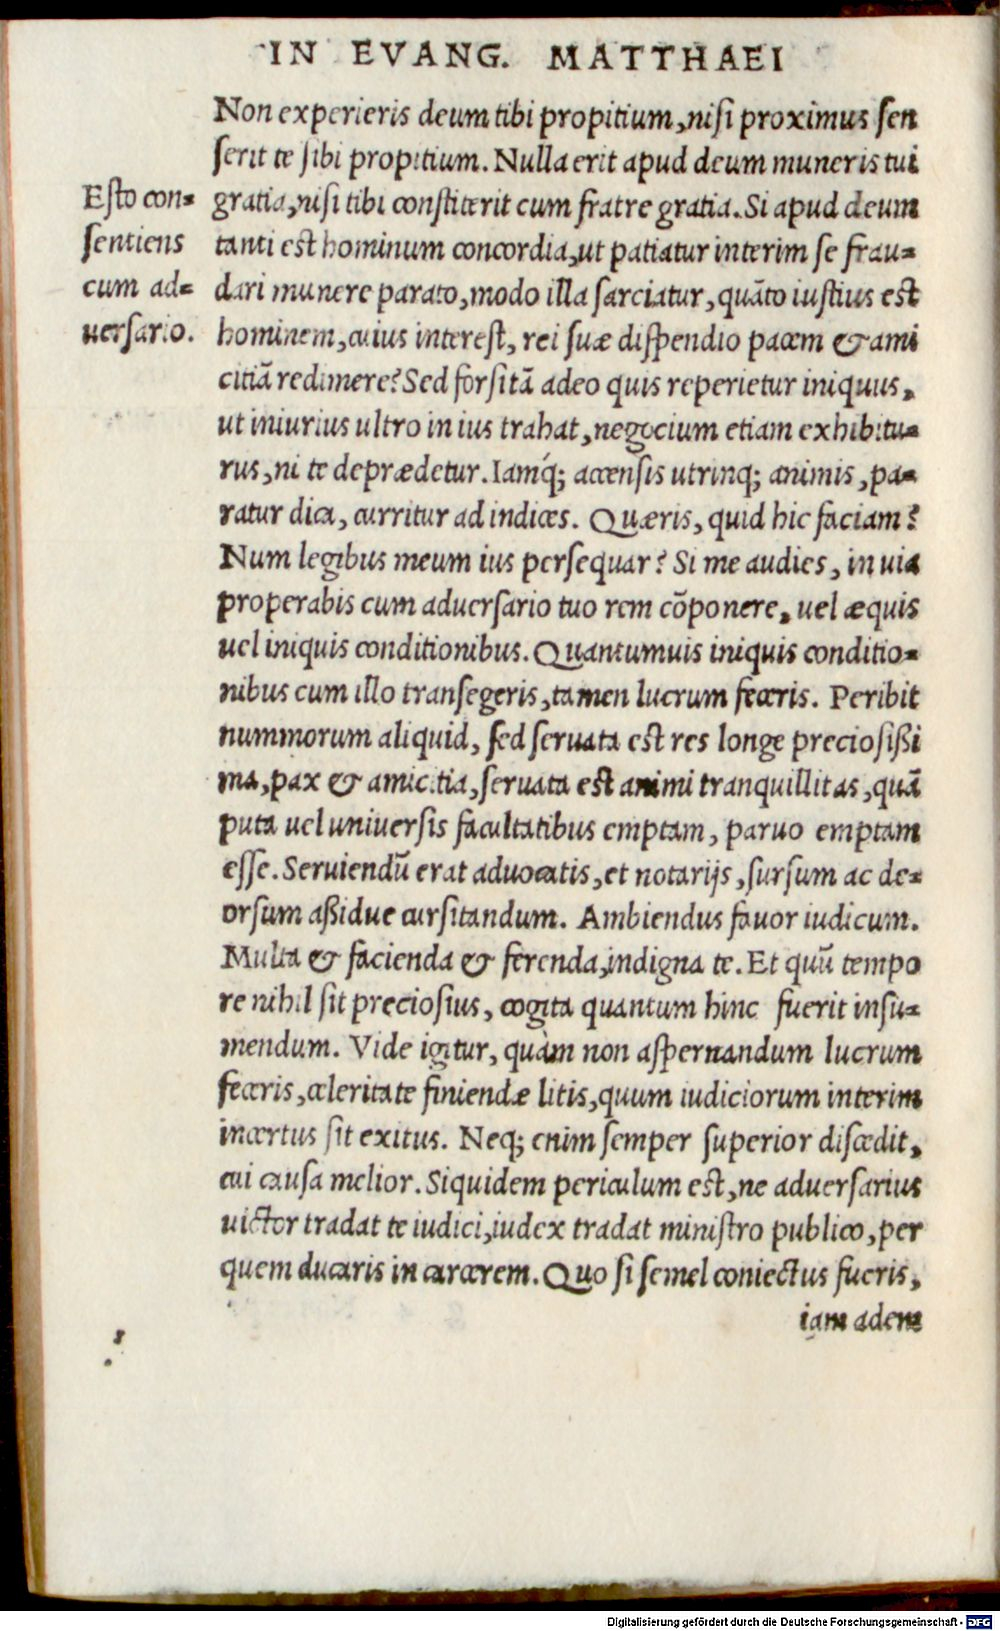 IN EVANG. MATTHAEI
Non experieris deum tibi propitium, nisi proximus sen
serit te sibi propitium. Nulla erit apud deum muneris tui
gratia, nisi tibi constiterit cum fratre gratia. Si apud deum
tanti est hominum concordia, ut patiatur interim se frau-
dari munere parato, modo illa sarciatur, quãto iustius est
hominem, cuius interest, rei suæ dispendio pacem & ami
citiã redimere? Sed forsitã adeo quis reperietur iniquus,
ut iniurius ultro in ius trahat, negocium etiam exhibitu-
rus, ni te deprædetur. Iamq́; accensis utrinq; animis, pa-
ratur dica, curritur ad iudices. Quæris, quid hic faciam?
Num legibus meum ius persequar? Si me audies, in uia
properabis cum aduersario tuo rem cõponere, uel æquis
uel iniquis conditionibus. Quantumuis iniquis conditio-
nibus cum illo transegeris, tamen lucrum feceris. Peribit
nummorum aliquid, sed seruata est res longe preciosißi
ma, pax & amicitia, seruata est animi tranquillitas, quã
puta uel uniuersis facultatibus emptam, paruo emptam
esse. Seruiendũ erat aduocatis, et notarijs, sursum ac de-
orsum aßidue cursitandum. Ambiendus fauor iudicum.
Multa & facienda & ferenda, indigna te. Et quũ tempo
re nihil sit preciosius, cogita quantum hinc fuerit insu-
mendum. Vide igitur, quàm non aspernandum lucrum
feceris, celeritate finiendæ litis, quum iudiciorum interim
incertus sit exitus. Neq; enim semper superior discedit,
cui causa melior. Siquidem periculum est, ne aduersarius
uictor tradat te iudici, iudex tradat ministro publico, per
quem ducaris in carcerem. Quo si semel coniectus fueris,
iam adem
Esto con-
sentiens
cum ad-
uersario.
Digitalisierung gefördert durch die Deutsche Forschungsgemeinschaft - DFG